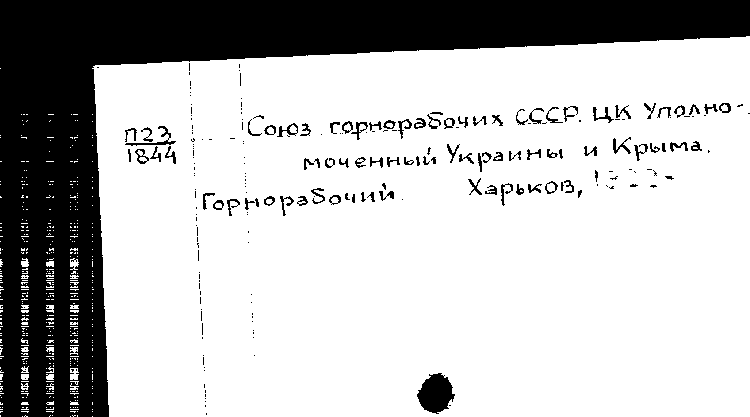 П23
1844
Союз горнорабочих СССР. ЦК Уполно-
моченный Украины и Крыма.
Горнорабочий. Харьков,